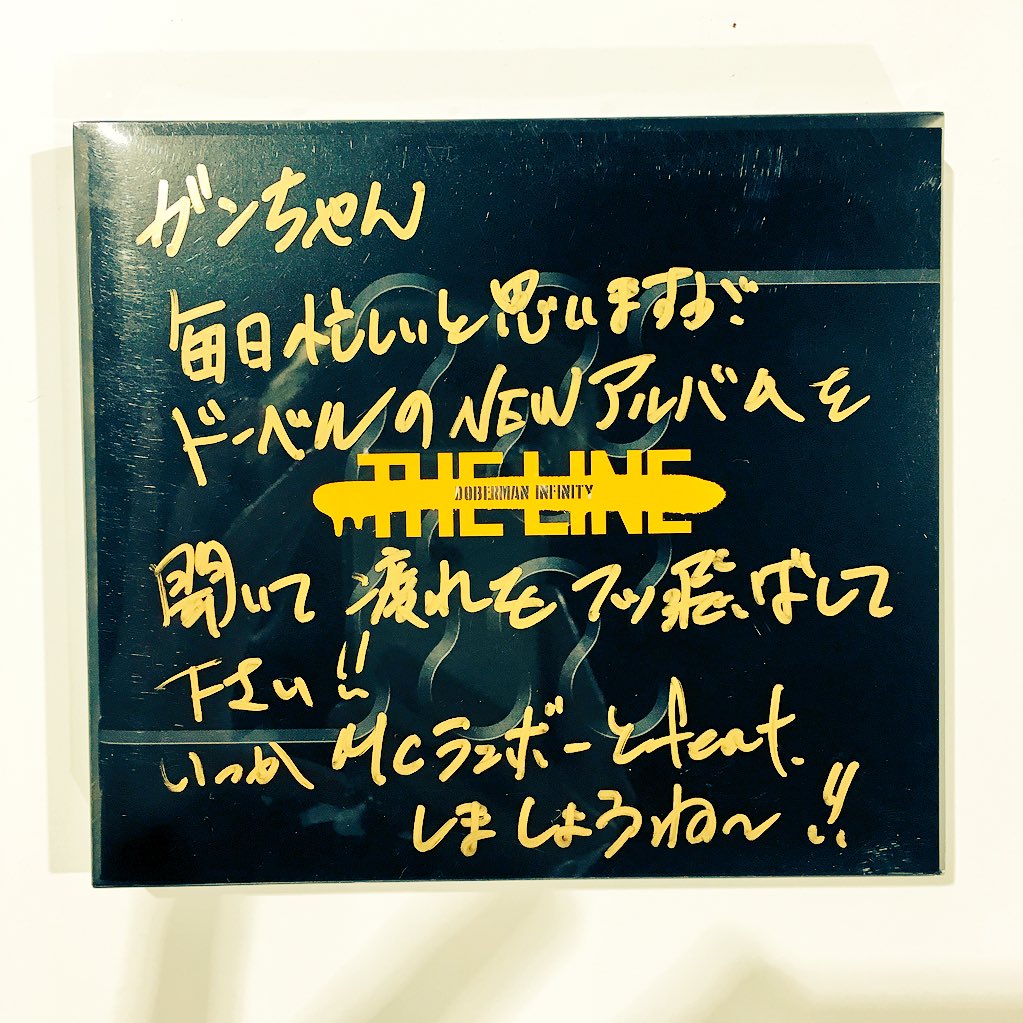 ガンちゃん
毎日忙しいと思いますが
ドーベルのNEWアルバムを
THE LINE
DOBERMAN INFINITY
聞いて疲れをブッ飛ばして
下さい!!
いつかMCランボーとfeat.
しましょうね〜!!